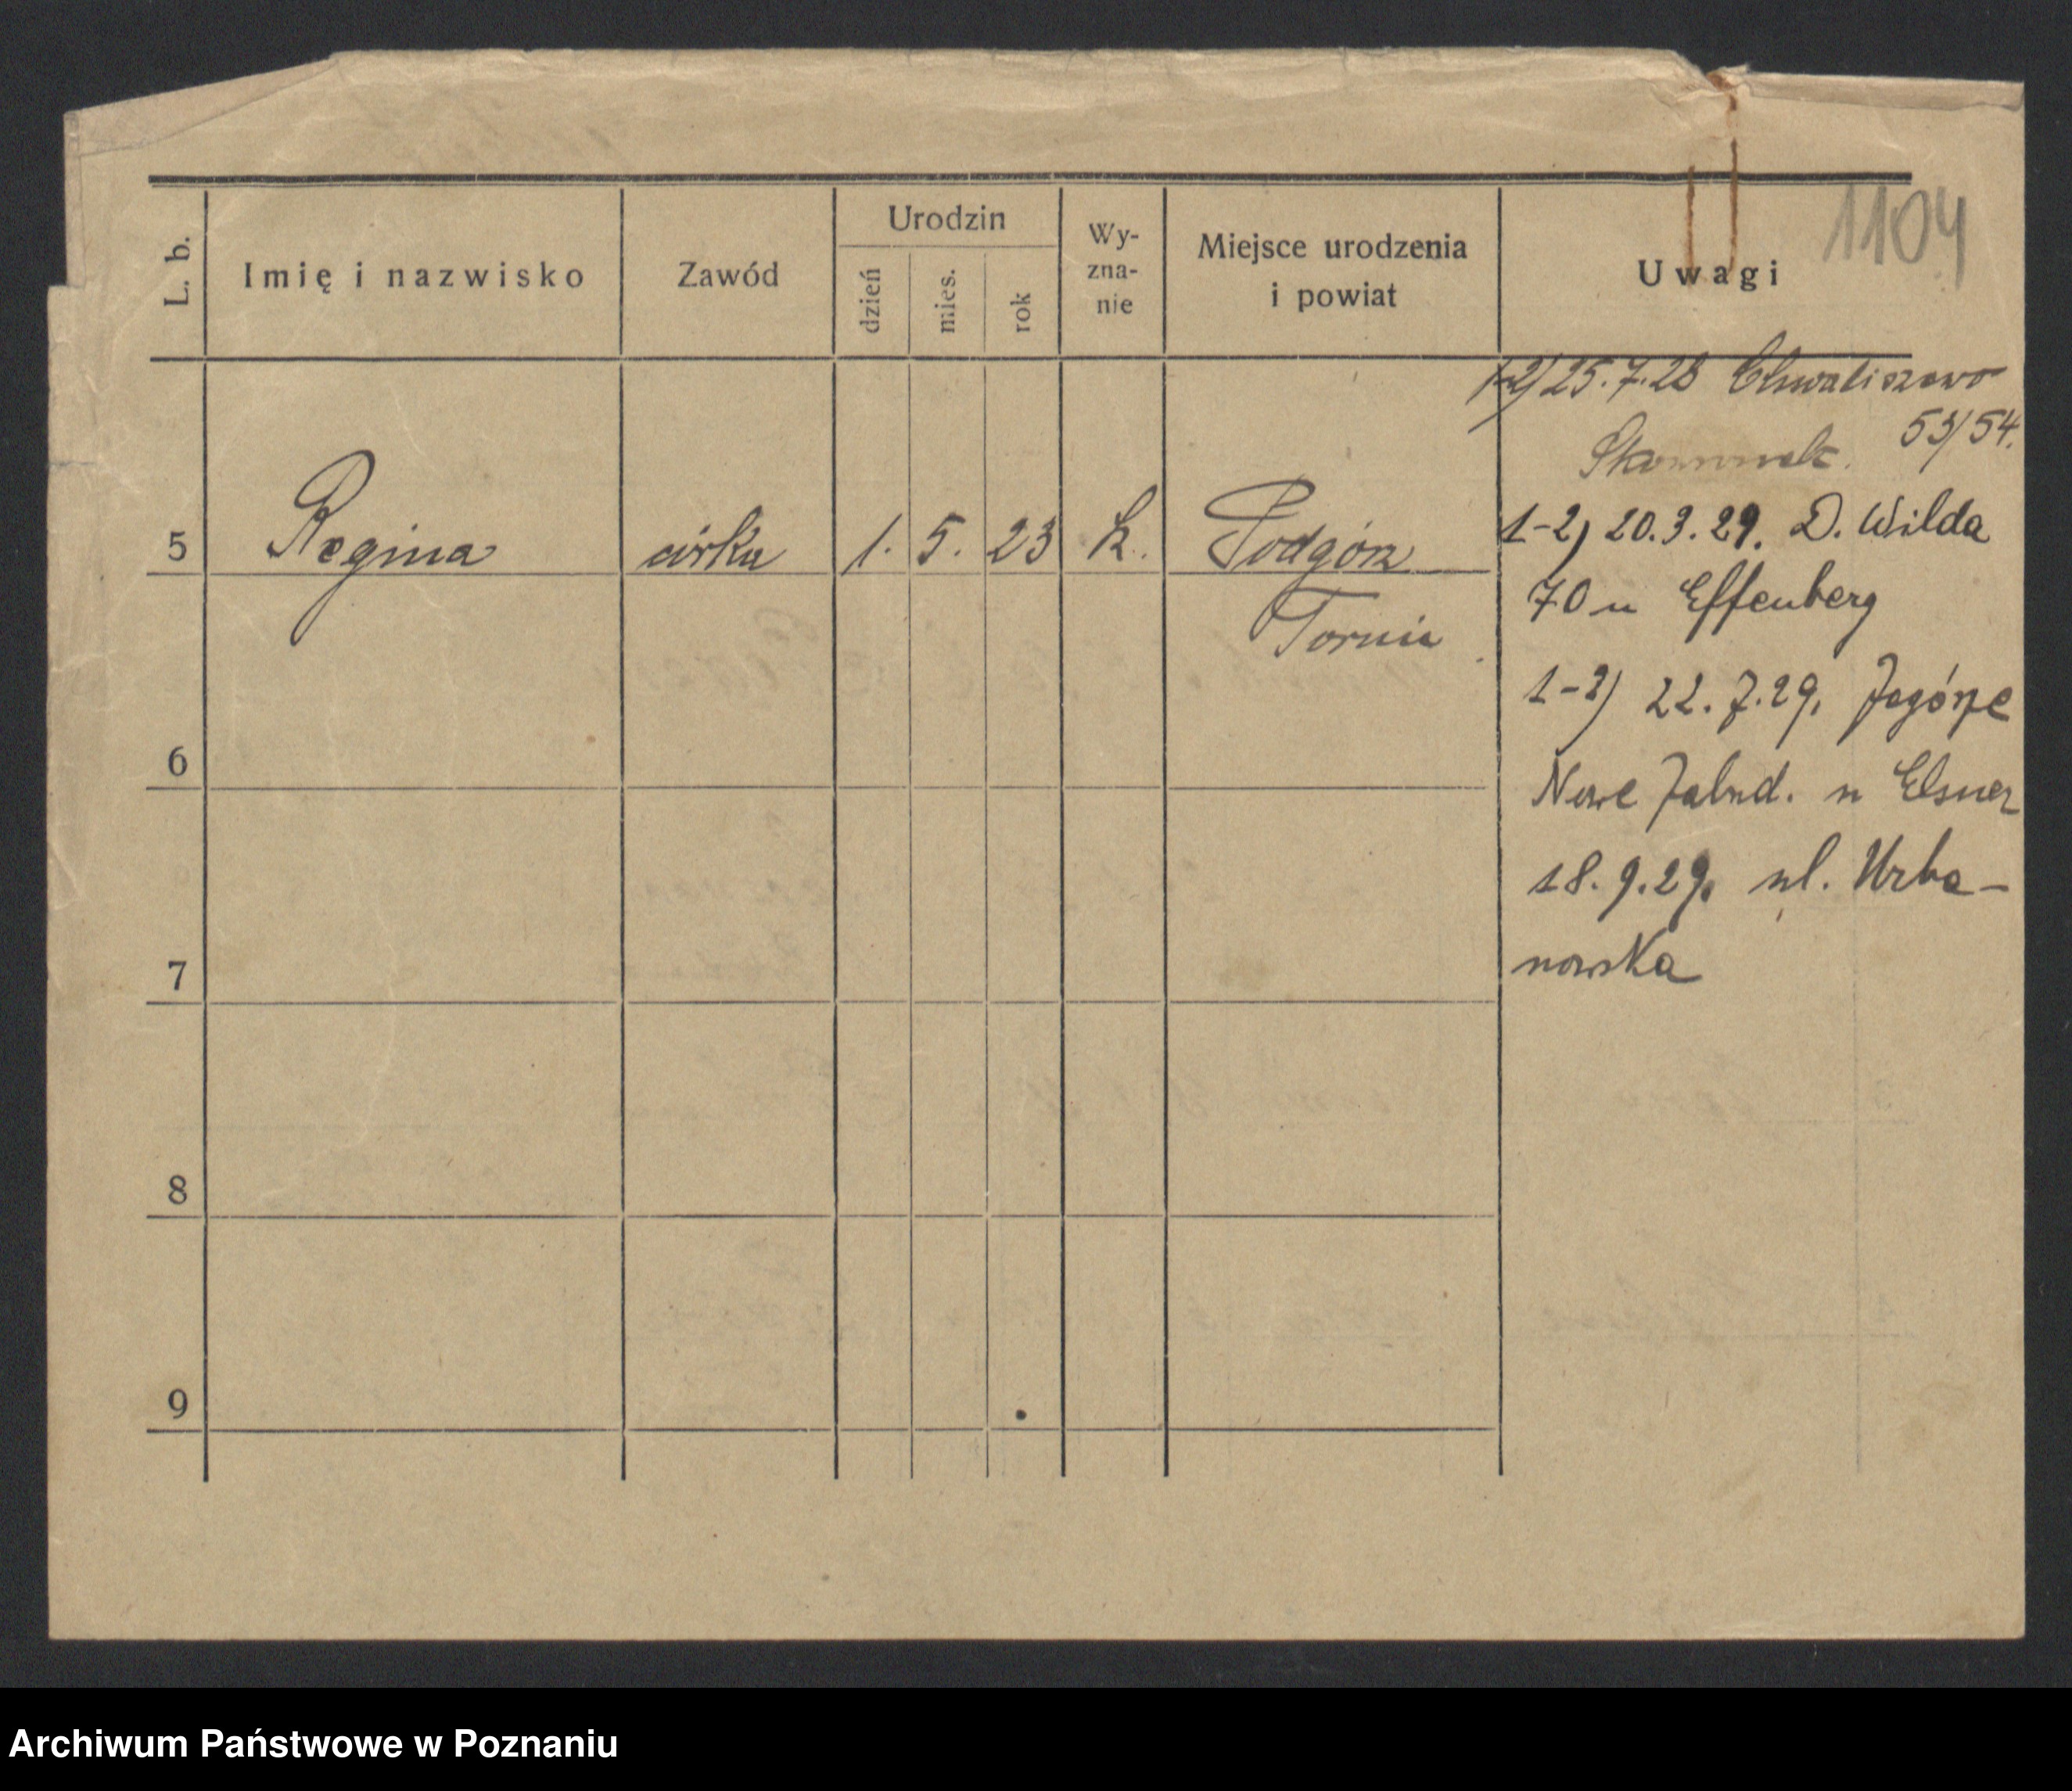 1104
L. b. Imię i nazwisko Zawód Urodzin dzień mies. rok Wy-zna-nie Miejsce urodzenia i powiat Uwagi
1-2) 25.7.28 Chwaliszewo
53/54.
5 Regina córka 1. 5. 23 k. Podgórz
Toruń
1-2) 20.3.29. D. Wilda
70 u Effenberg
1-2) 22.7.29, Zagórze
Nowe Zabud. u Elsner
18.9.29, ul. Urba-
nowska
6
7
8
9
Archiwum Państwowe w Poznaniu